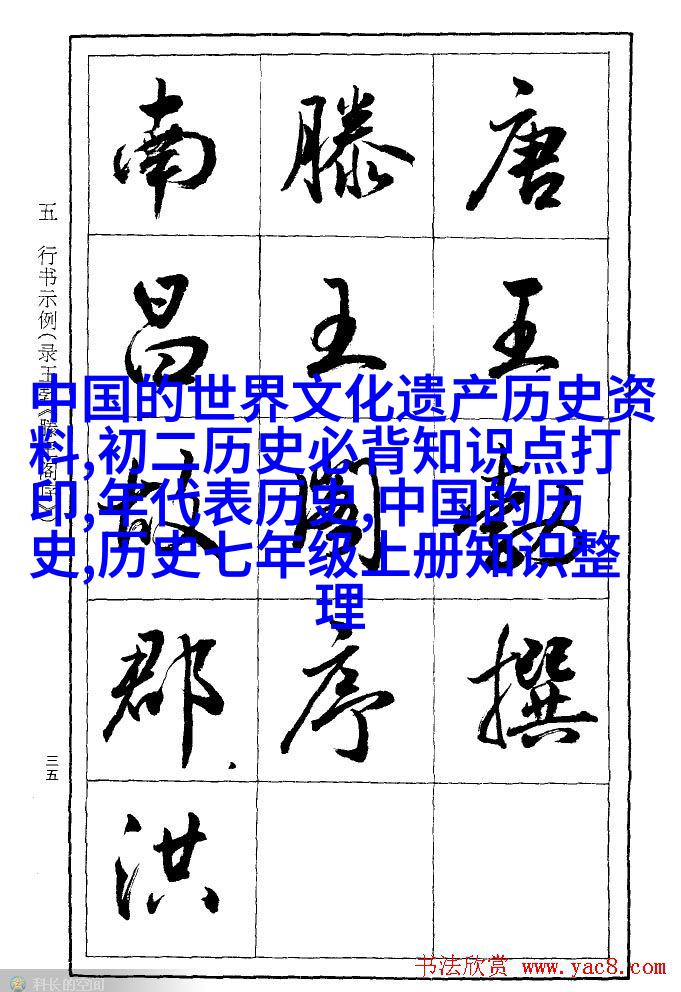 唐王勃撰
滕王阁序
南昌故郡洪
五 行书示例(录王勃《滕王阁序》)
三五
中国的世界文化遗产历史资
料,初二历史必背知识点打
印,年代表历史,中国的历
史,历史七年级上册知识整
理
书法欣赏 www.yac8.com
科长的空间